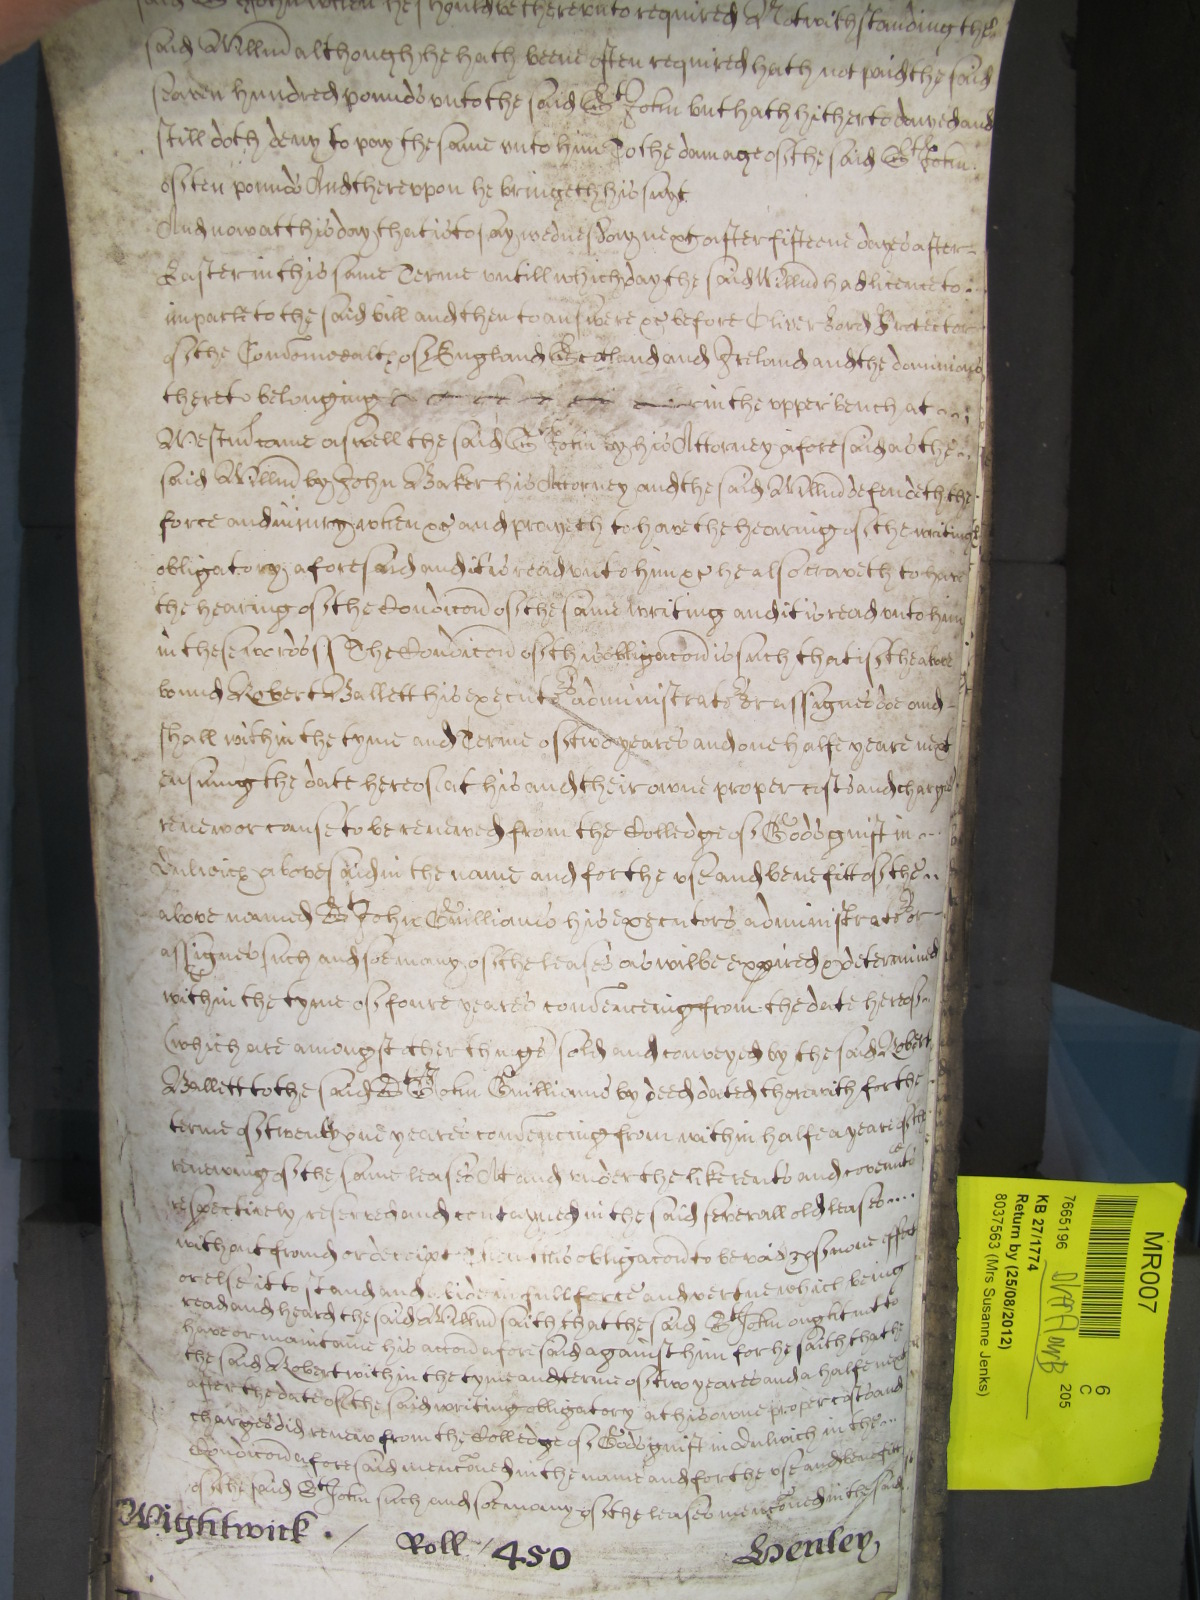 said St John when he should be thereunto required Notwithstanding the
said Willm although he hath beene often required hath not paid the said
seaven hundred pounds unto the said St John but hath hitherto denyed and
still doth deny to pay the same unto him To the damage of the said St John
of ten pounds And thereupon he bringeth his suyt
And now att this day that is to say wednesday next after fifteene dayes after
Easter in this same Terme untill which day the said Willm had licence to
imparle to the said bill and then to answere &c before Oliver Lord Protector
of the Comonwealth of England Scotland and Ireland and the dominions
thereto belonging in the upper bench at
Westmr came aswell the said St John by his Attorney aforesaid as the
said Willm by John Barker his Attorney and the said Willm defendeth the
force and iniury when &c and prayeth to have the hearing of the writing
obligatory aforesaid and it is read unto him &c he also craveth to have
the hearing of the Condicon of the same writing and it is read unto him
in these words ss The Condicon of this obligacon is such that if the above
bound Robert Ballett his executrs administratrs or assignes doe and
shall within the tyme and Terme of two yeares and one halfe yeare next
ensuing the date hereof at his and their owne proper costs and charges
renew or cause to be renewed from the Colledge of Gods guift in
Dulwich abovesaid in the name and for the use and benefitt of the
above named St John Guilliams his executors administratrs or
assignes such and soe many of the leases as wilbe expired & determined
within the tyme of foure yeares comencing from the date hereof
(which are amongst other things sold and conveyed by the said Robert
Ballett to the said St John Guilliams by deed dated therewith for the
terme of twenty one yeares comencing from within halfe a yeare of the
renewing of the same leases At and under the like rents and covents
respectively reserved and contayned in the said severall old leases
without fraud or deceipt Then this obligacon to be void & of none effect
or else it to stand and abide in full force and vertue which being
read and heard the said Willm saith that the said St John ought not to
have or maintaine his accon aforesaid against him for he saith that the
the said Robert within the tyme and terme of two yeares and a halfe next
after the date of the said writing obligatory at his owne proper costs and
charges did renew from the Colledge of Gods guift in Dulwich in the
Condicon aforesaid menconed in the name and for the use and benefitt
of the said St John such and soe many of the leases menconed in the said
Wightwick . / Roll / 450 Henley
MR007
6
C
7665196 205
KB 27/1774
Return by (25/08/2012)
8037563 (Mrs Susanne Jenks)